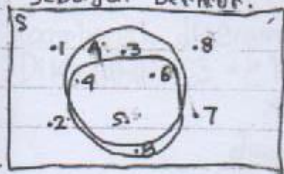 sebagai berikut.
S
.1 A .3 .8
.4 .6
.2 .7